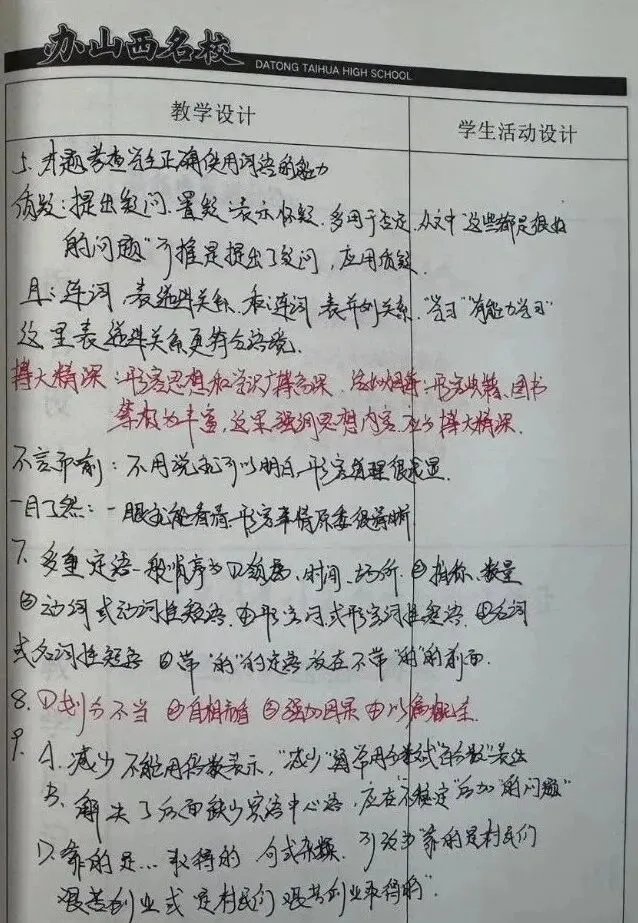 办山西名校
DATONG TAIHUA HIGH SCHOOL
教学设计
学生活动设计
5. 本题考查学生正确使用词语的能力
质疑:提出疑问. 置疑:表示怀疑. 多用于否定. 从文中"这些都是很好
的问题"可推是提出了疑问,应用质疑.
且:连词,表递进关系. 和:连词 表并列关系. "学习""有能力学习"
这里表递进关系更符合语境.
博大精深:形容思想和学识广博高深. 浩如烟海:形容典籍、图书
等极为丰富,这里强调思想内容,应为博大精深.
不言而喻:不用说就可以明白,形容道理很浅显.
一目了然:一眼就能看清,形容事情原委很清晰
7. 多重定语一般顺序为 ①领属、时间、场所 ②指称、数量
③动词或动词性短语. ④形容词或形容词性短语. ⑤名词
或名词性短语 ⑥带"的"的定语放在不带"的"的前面.
8. ①划分不当 ②自相矛盾 ③强加因果 ④以偏概全.
9. A. 减少不能用倍数表示,"减少"通常用分数或"百分数"表达
B. 解决了后面缺少宾语中心语,应在不稳定"后加"的问题"
D. 靠的是…取得的 句式杂糅. 可改为"靠的是村民们
艰苦创业或"是村民们艰苦创业取得的".